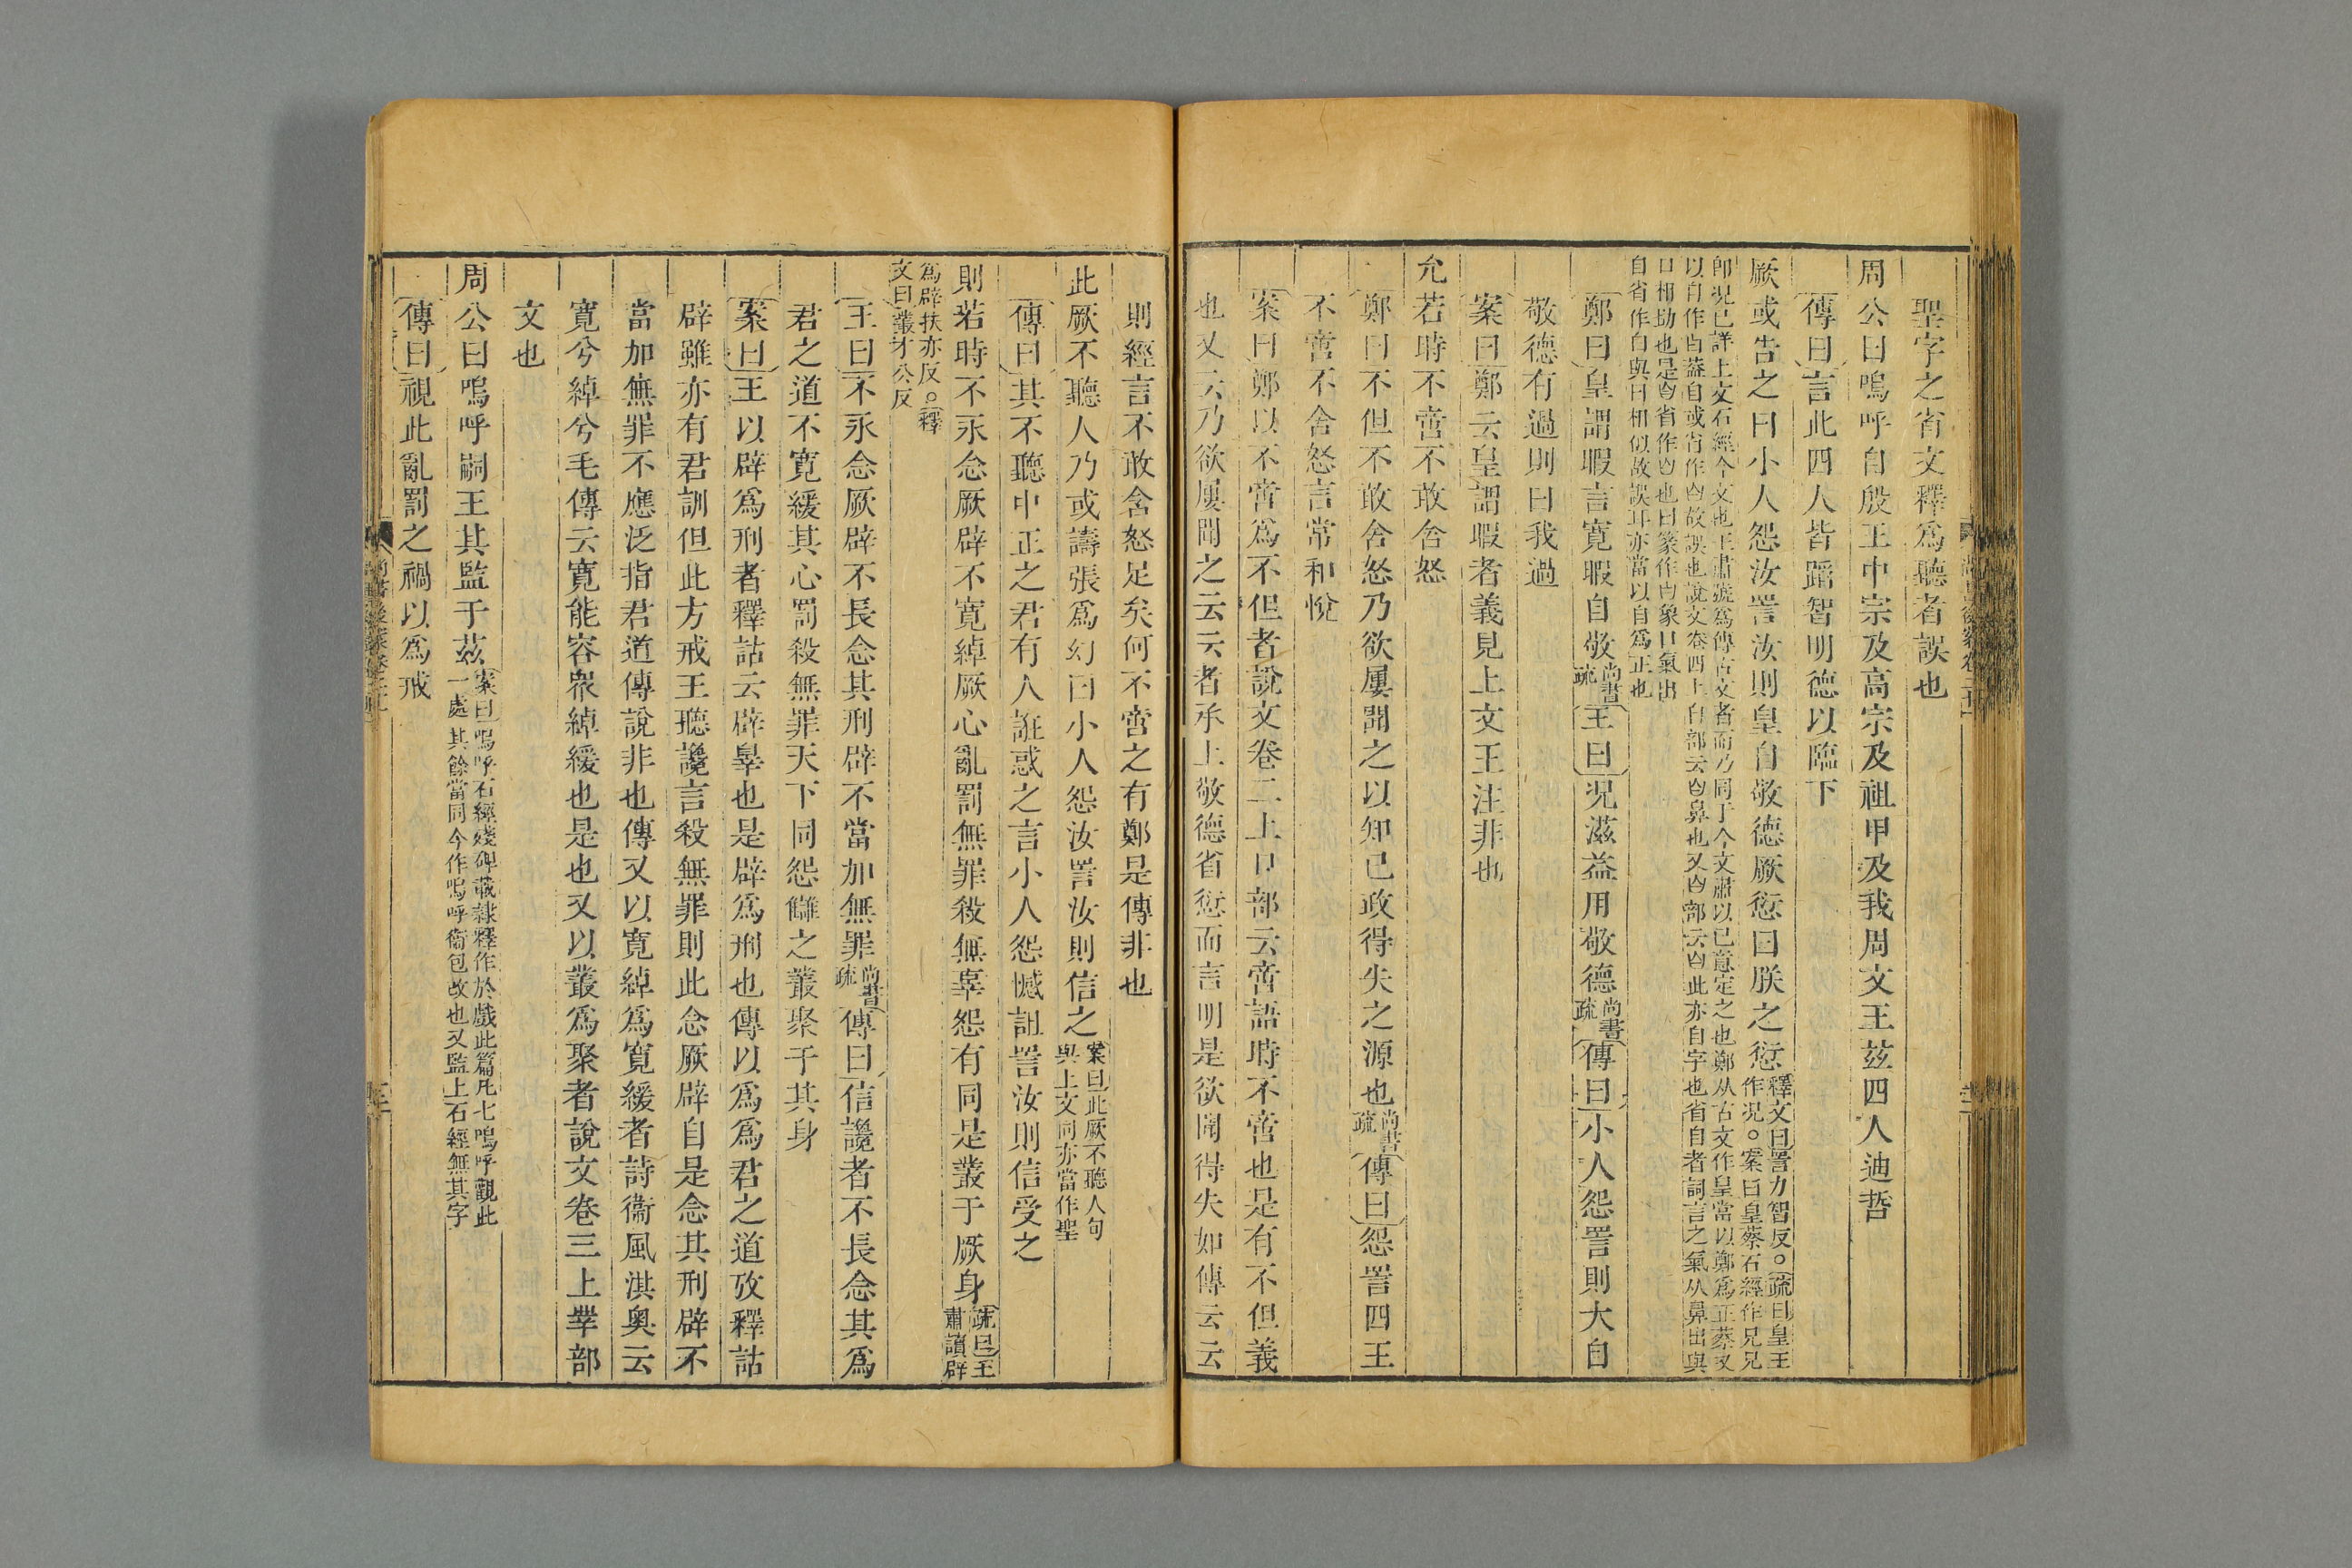 聖字之省文釋爲聽者誤也
周公曰嗚呼自殷王中宗及高宗及祖甲及我周文王茲四人迪哲
傳曰言此四人皆蹈智明德以臨下
厥或告之曰小人怨汝詈汝則皇自敬德厥愆曰朕之愆
釋文曰詈力智反○疏曰皇王
作况○案曰皇蔡石經作兄兄
卽况已詳上文石經今文也王肅號爲傳古文者而乃同于今文肅以已意定之也鄭从古文作皇當以鄭爲正蔡又
以自作白葢自或省作白故誤也說文卷四上白部云白鼻也又白部云白此亦自字也省自者詞言之氣从鼻出與
口相助也是自省作白也曰篆作曰象口氣出
自省作白與曰相似故誤耳亦當以自爲正也
鄭曰皇謂暇言寬暇自敬尚書疏王曰况滋益用敬德尚書疏傳曰小人怨詈則大自
敬德有過則曰我過
案曰鄭云皇謂暇者義見上文王注非也
允若時不啻不敢含怒
鄭曰不但不敢含怒乃欲屢聞之以知已政得失之源也尚書疏傳曰怨詈四王
不啻不含怒言常和悅
案曰鄭以不啻爲不但者說文卷二上口部云啻語時不啻也是有不但義
也又云乃欲屢聞之云云者承上敬德省愆而言明是欲聞得失如傳云云
則經言不敢含怒足矣何不啻之有鄭是傳非也
此厥不聽人乃或譸張爲幻曰小人怨汝詈汝則信之
案曰此厥不聽人句
與上文同亦當作聖
傳曰其不聽中正之君有人誑惑之言小人怨憾詛詈汝則信受之
則若時不永念厥辟不寬綽厥心亂罰無罪殺無辜怨有同是叢于厥身
疏曰王
肅讀辟
爲辟扶亦反○釋
文曰叢才公反
王曰不永念厥辟不長念其刑辟不當加無罪尚書疏傳曰信讒者不長念其爲
君之道不寬緩其心罰殺無罪天下同怨讎之叢聚于其身
案曰王以辟爲刑者釋詁云辟辠也是辟爲刑也傳以爲爲君之道攷釋詁
辟雖亦有君訓但此方戒王聽讒言殺無罪則此念厥辟自是念其刑辟不
當加無罪不應泛指君道傳說非也傳又以寬綽爲寬緩者詩衞風淇奧云
寬兮綽兮毛傳云寬能容衆綽緩也是也又以叢爲聚者說文卷三上丵部
文也
周公曰嗚呼嗣王其監于茲
案曰嗚呼石經殘碑載隸釋作於戲此篇凡七嗚呼觀此
一處其餘當同今作嗚呼衞包改也又監上石經無其字
傳曰視此亂罰之禍以爲戒